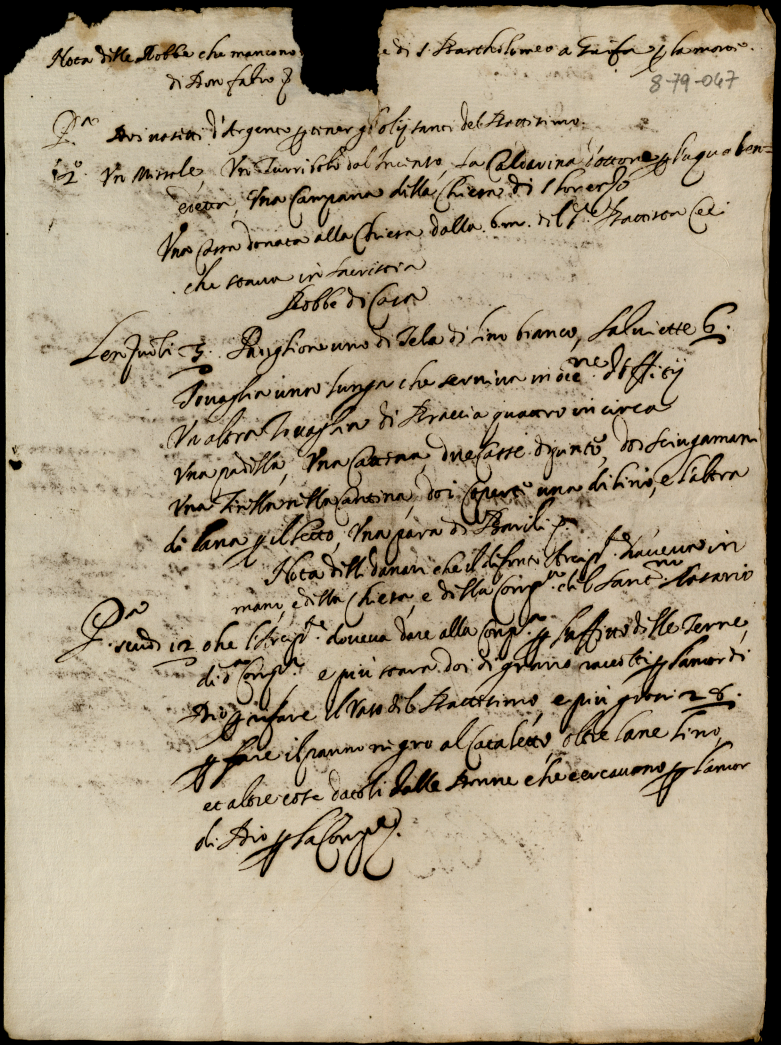 Nota delle Robbe che mancono e di S. Bartholomeo a per la morte
di Don fabio
8-79-047
P.ª Doi vasetti d'Argento per tener gl'olij santi del Battesimo
2º Un Missale, Un Turribolo dal Incenso, La Caldarina d'ottone per l'aqua ben=
edetta, Una Campana della Chiesa di S. Lorenzo
Una donata alla Chiesa dalla b.m. di Battista
che stava in sacristia
Robbe di Casa
Lenzuoli 3. Paviglione uno di Tela di lino bianco, Salviette 6.
Tovaglia una lunga che serviva in die d'offitij
Un altra tovaglia di Braccia quattro in circa
Una padella, Una Cattena, due Casse doi sciugamani
Una nella Cantina, doi coperte una di lino, e l'altra
di lana per il letto, Una para di Barili
Nota delli danari che il difonto Arcip.te haveva in
mano, e della Chiesa, e della Comp.ª del Sant.mo Rosario
P.ª scudi 12 che l'Arcip.te doveva dare alla Comp.ª per l'affitto delle Terre
di d.ª Comp.ª, e più stara doi di grano raccolti per l'amor di
Dio per rifare il Vaso del Battesimo, e più grossi 28.
per fare il panno negro al Cataletto, oltre lane lino,
et altre cose datoli dalle Donne che cercavano per l'amor
di Dio per la Comp.ª